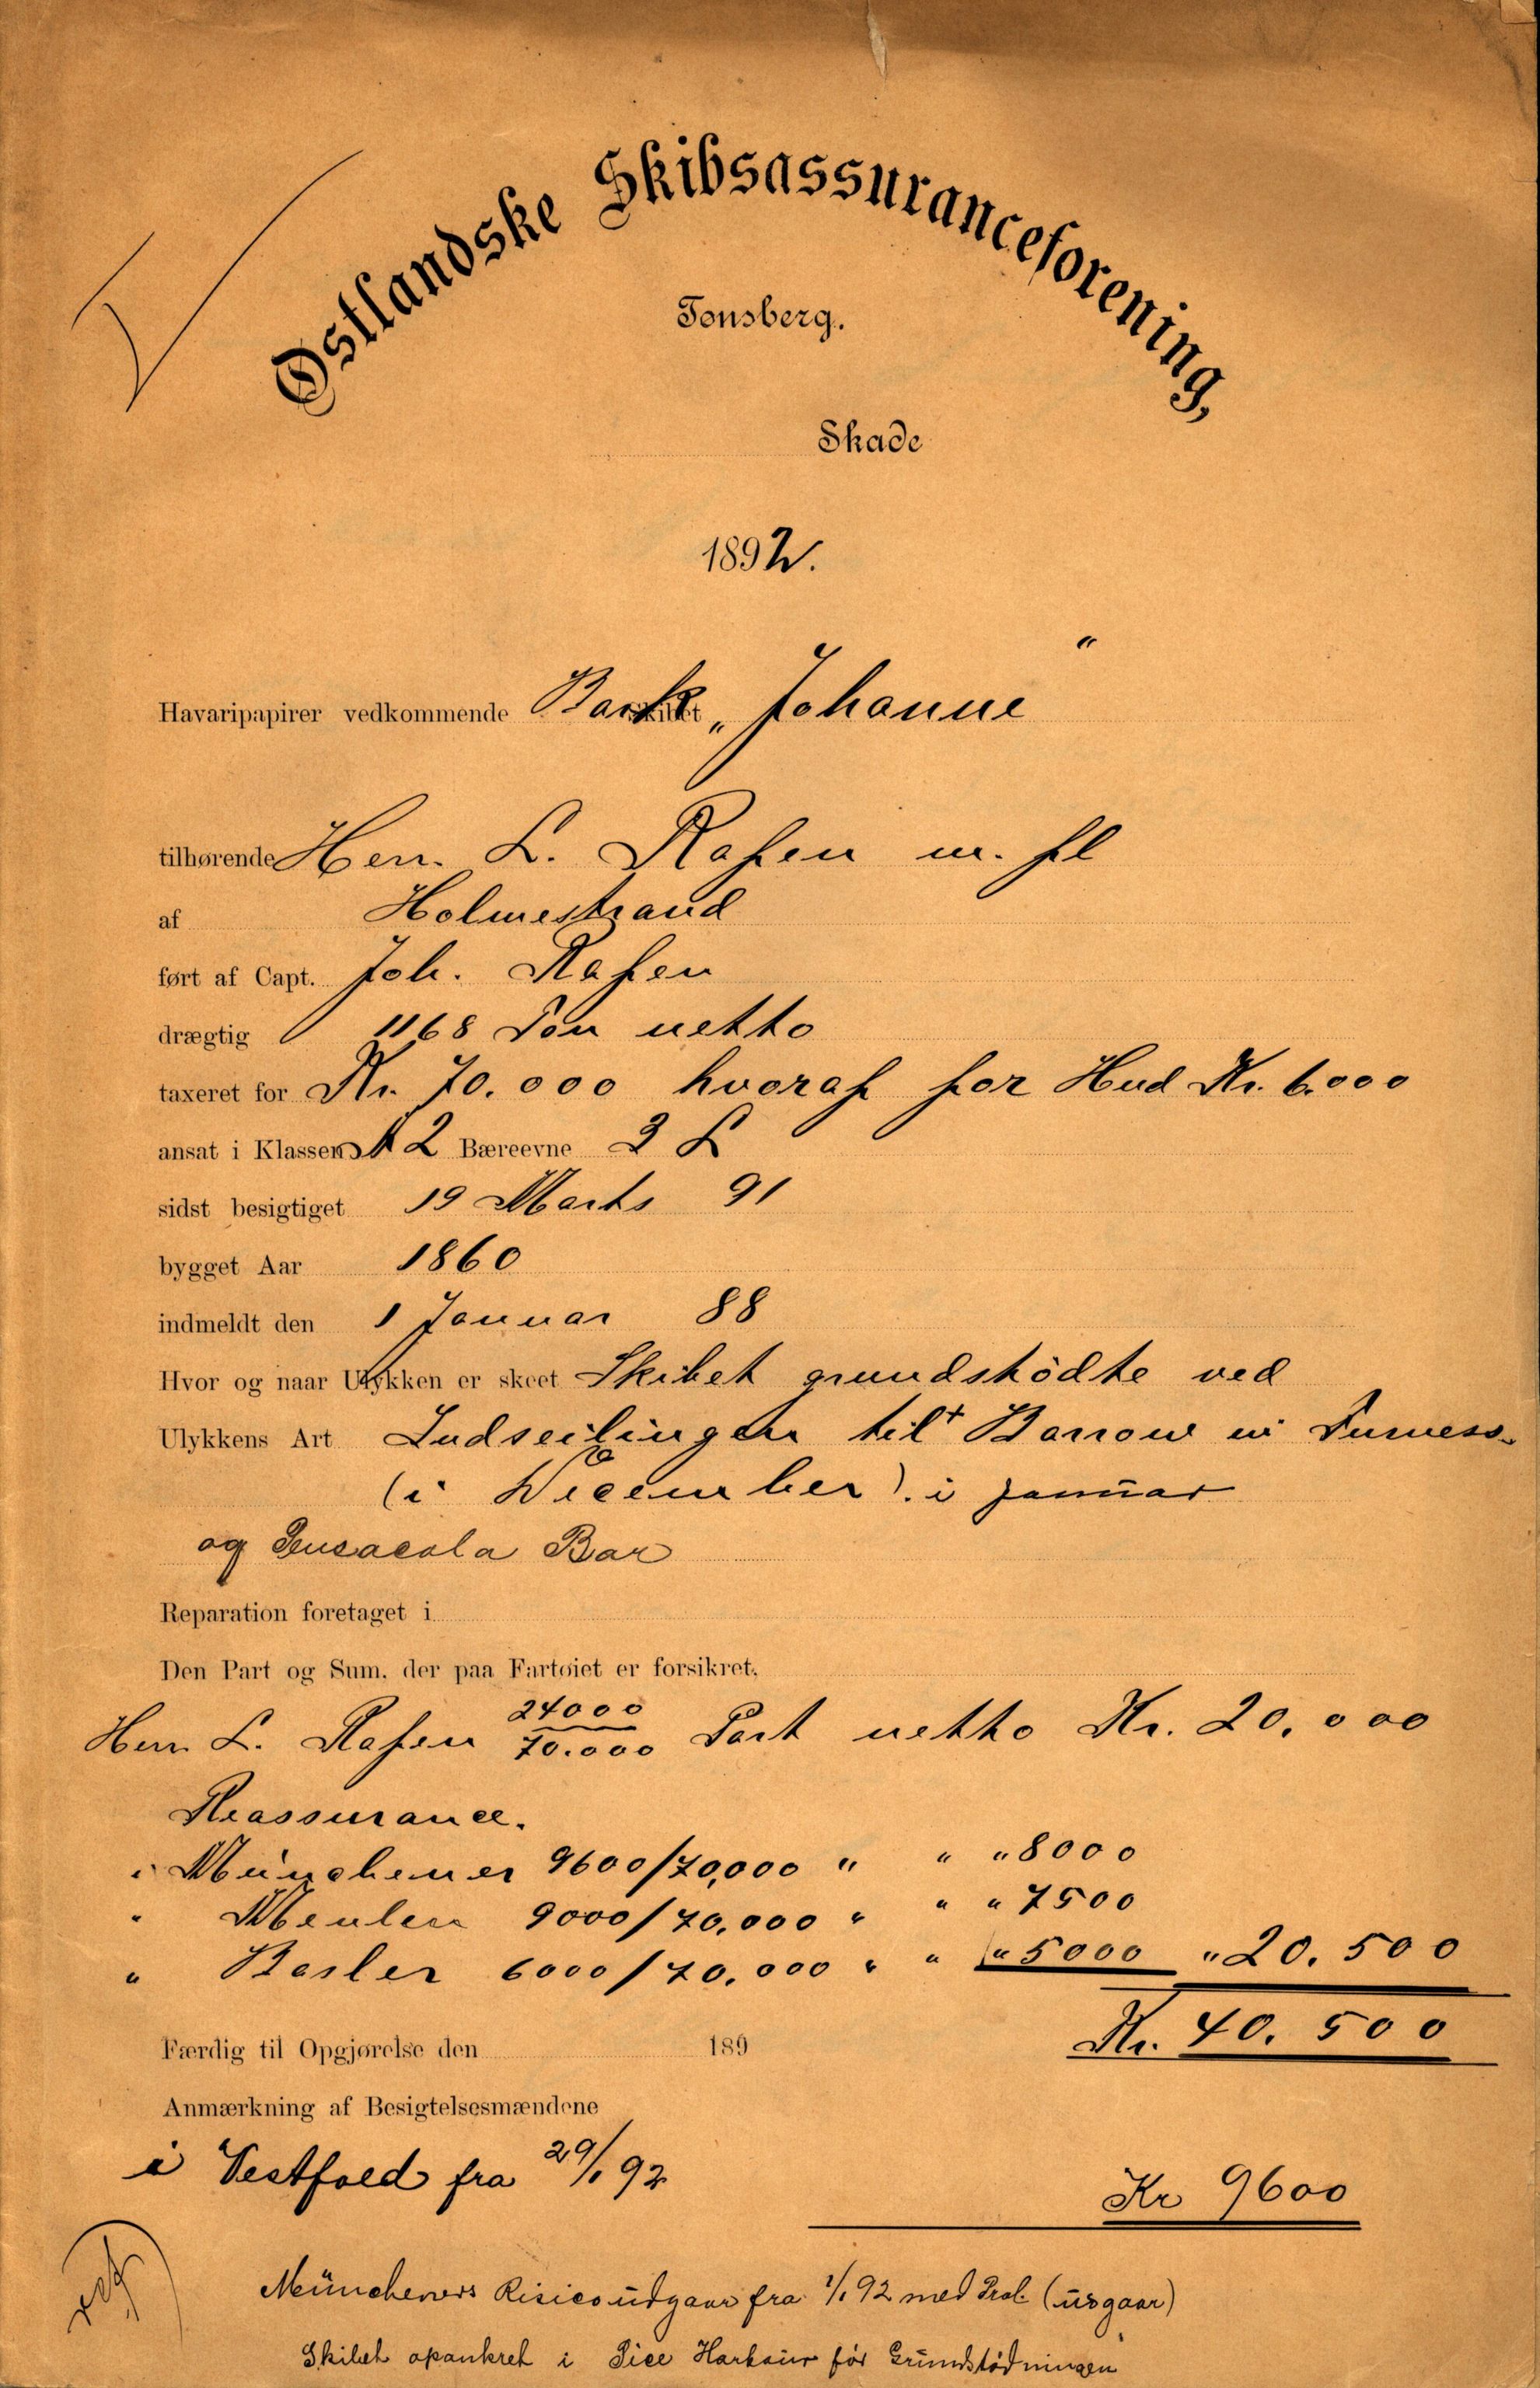 Østlandske Skibsassuranceforening,
Tønsberg.
Skade
1892.
Havaripapirer vedkommende Bark skibet „Johanne“
tilhørende Herr. L. Rafen m. fl
af Holmestrand
ført af Capt. Joh. Rafen
drægtig 1168 Ton netto
taxeret for Kr. 70.000 hvoraf for Hud Kr. 6.000
ansat i Klassen A 2 Bæreevne 3 L
sidst besigtiget 19 Marts 91
bygget Aar 1860
indmeldt den 1 Januar 88
Hvor og naar Ulykken er skeet Skibet grundstödte ved
Ulykkens Art Indseilingen til Barrow in Furness.
(i December). i januar
og Pensacola Bar
Reparation foretaget i
Den Part og Sum, der paa Fartøiet er forsikret,
Herr L. Rafen 24000/70.000 Part netto Kr. 20.000
Reassurance.
i Münchener 9600/70,000 " " " 8000
" 9000/70.000 " " " 7500
" Basler 6000/70.000 " " " 5000 " 20.500
Kr. 40.500
Færdig til Opgjørelse den 189
Anmærkning af Besigtelsesmændene
i Vestfold fra 29/1 92
Kr 9600
Müncheners Risico üdgaar fra 1/1 92 med (üdgaar)
Skibet opankret i Harboür för Gründstödningen